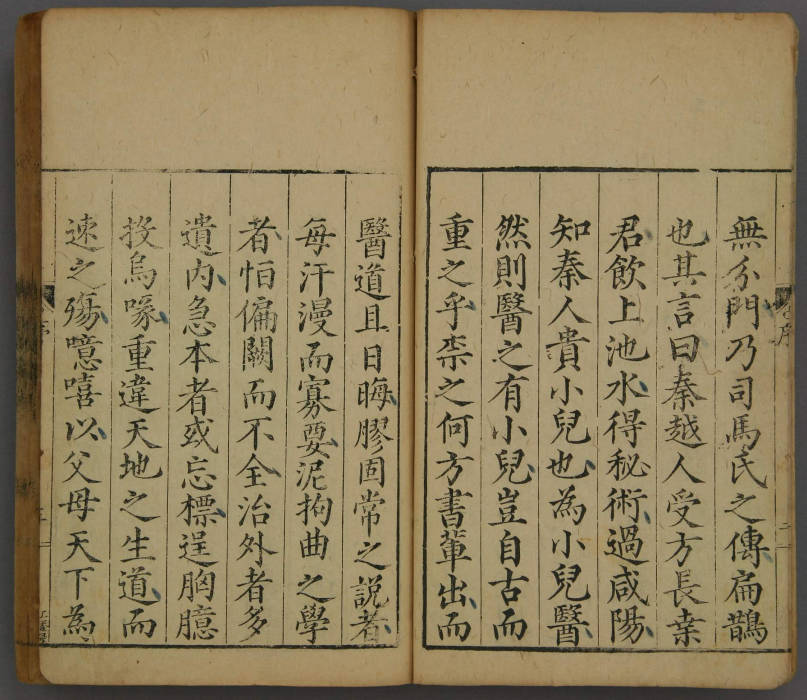 無分門乃司馬氏之傳扁鵲
也其言曰秦越人受方長桒
君飲上池水得秘術過咸陽
知秦人貴小兒也為小兒醫
然則醫之有小兒豈自古而
重之乎柰之何方書輩出而
醫道且日晦膠固常之說者
每汗漫而寡要泥拘曲之學
者怕偏闕而不全治外者多
遺内急本者或忘標逞胸臆
投烏喙重違天地之生道而
速之殤噫嘻以父母天下為